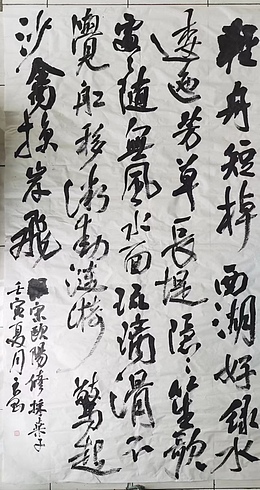 輕舟短棹西湖好綠水
逶迤芳草長堤隱隱笙歌
處處隨無風水面琉璃滑不
覺船移微動漣漪驚起
沙禽掠岸飛
宋歐陽修採桑子
壬寅夏月